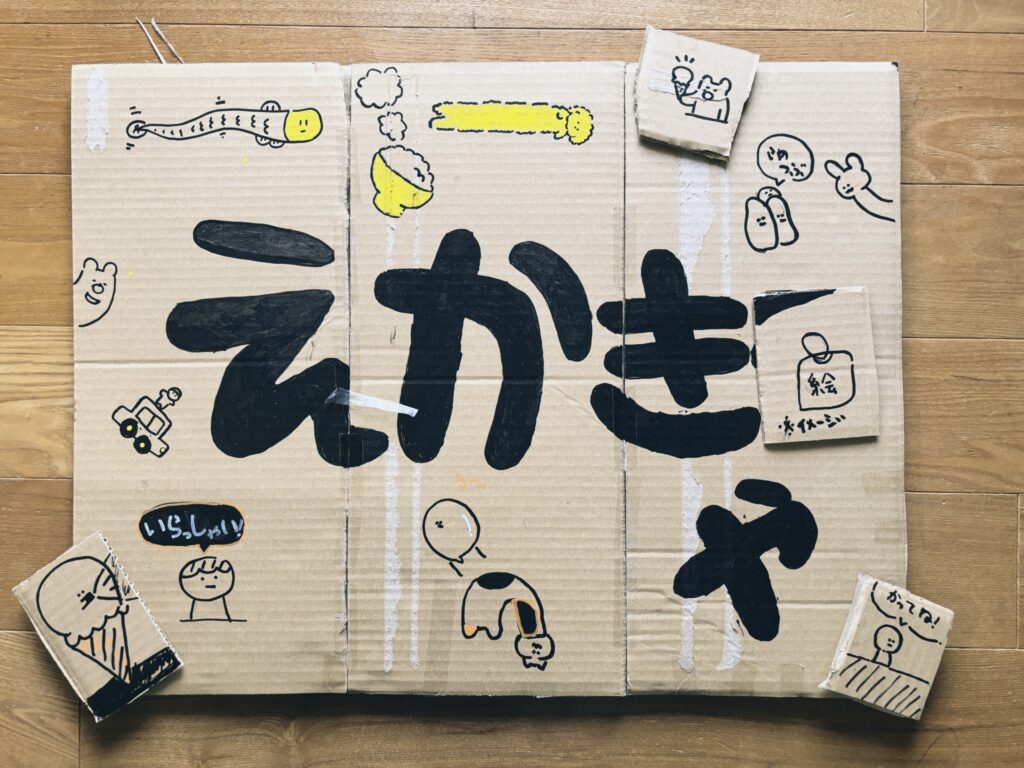 こめ
つぶ
えかき
や
絵
※イメージ
いらっしゃい!
かってね!